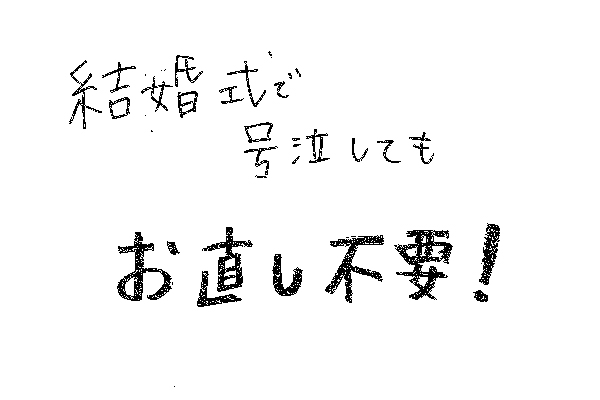 結婚式で
号泣しても
お直し不要!